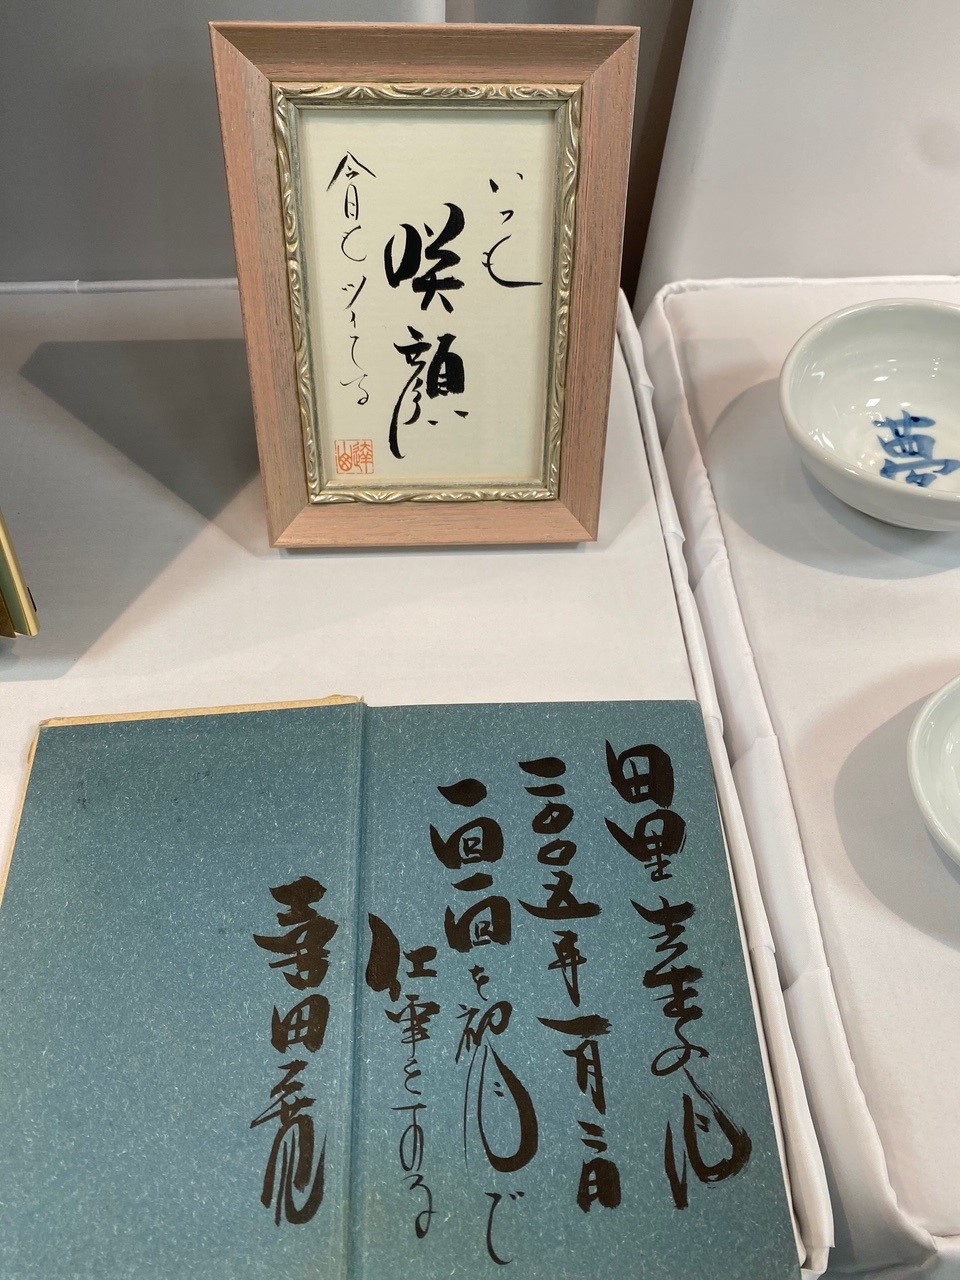 いつも
咲顔
今日もツイてる
夢
田里
二〇〇五年一月二日
一回一回を初心で
仕事をする